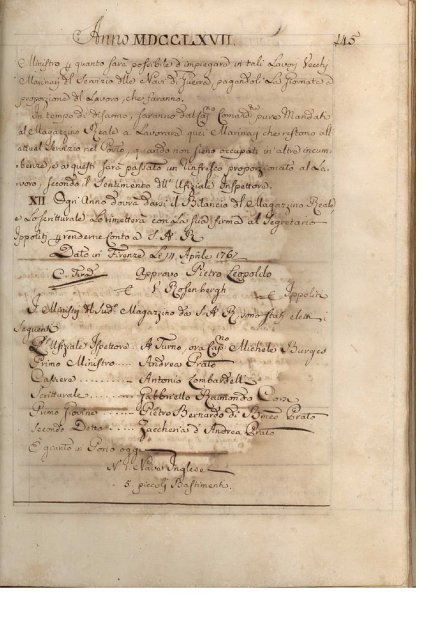 Anno MDCCLXVII. 145
Ministro p quanto sarà possibile d'impiegare in tali Lavori Vecchj
Marinaj del Servizio delle Navi di Guerra, pagandoli La Giornata a
proporzione del Lavoro, che faranno.
In tempo di disarmo, saranno dal Cap.no Comand.te pure Mandati
al Magazzino Reale a Lavorare quei Marinaj che restono all'
attual Servizio nel Porto, quando non sieno occupati in altre incum-
benze, e a questi sarà passato un rinfresco proporzionato al La-
voro, secondo il Sentimento dell' Ufiziale Inspettore.
XII Ogn'Anno dovrà darsi il Bilancio del Magazzino Reale,
e Lo scritturale Lo rimetterà con La sua firma al Segretario
Ippoliti p renderne Conto a S. A. R.
Dato in Firenze Li 14 Aprile 1767
Approvo Pietro Leopoldo
V. Rosenbergh
Ippoliti
I Ministri del Sud.o Magazzino da S. A. R. sono stati eletti i
Seguenti
L'Ufiziale Ispettore .. A Turno, ora Cap.no Michele Burges
Primo Ministro .... Andrea Prato
Cassiere .......... Antonio Lombardelli
Scritturale ........ Gabbriello Raimondo
Primo Giovine .... Pietro Bernardo di Prato
Secondo Detto .... Zaccheria d'Andrea Prato
E giunto in Porto oggi
N. 1. Nave Inglese
5. piccoli Bastimenti.